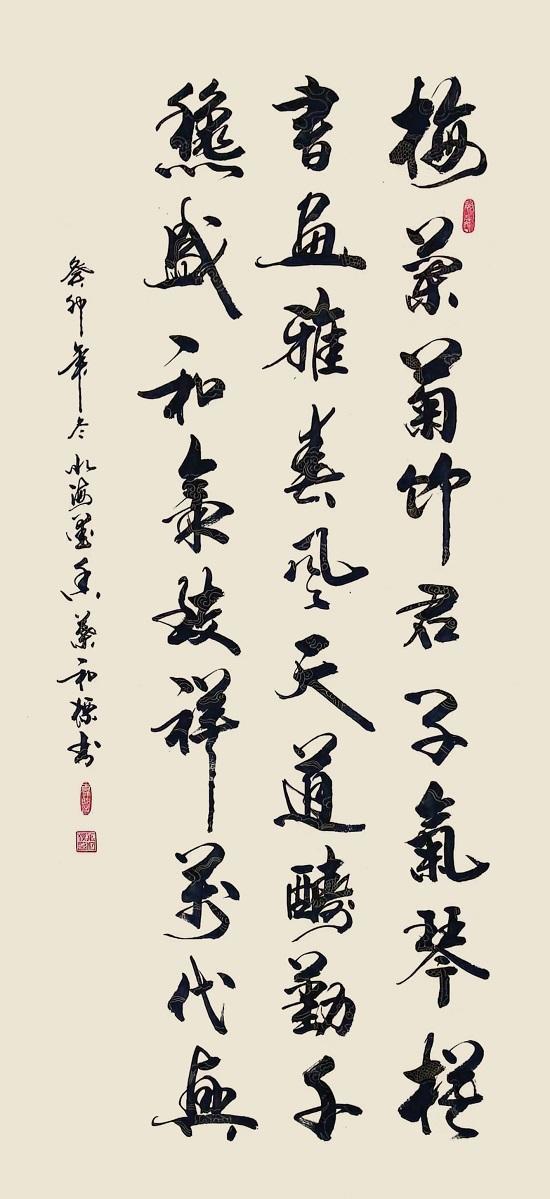 梅蘭菊竹君子氣琴棋
書畫雅春風天道醻勤千
龝盛和氣致祥萬代興
癸卯年冬海墨香和標書